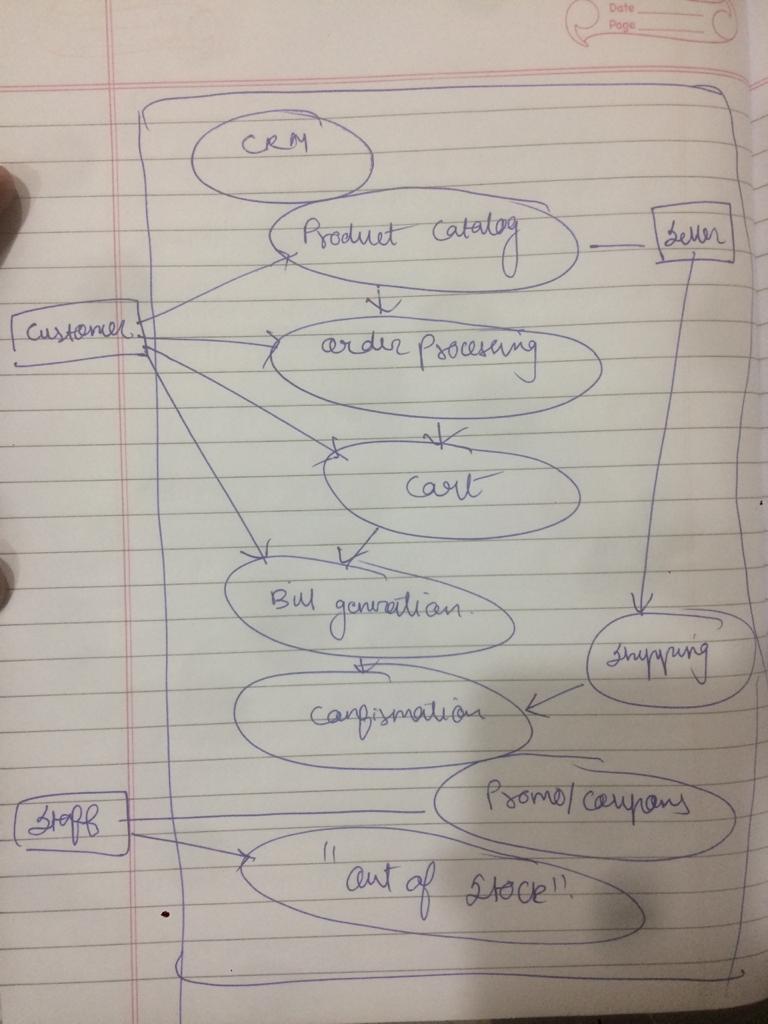 Date
Page
CRM
Product Catalog
Seller
Customer
order processing
Cart
Bill generation
Shipping
Confirmation
Promo/Coupons
Staff
"out of Stock"